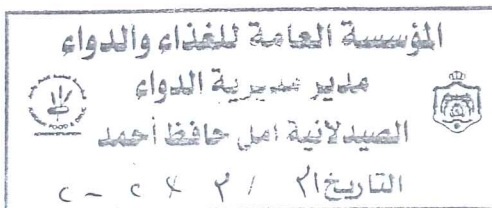 المؤسسة العامة للغذاء والدواء
مدير مديرية الدواء
الصيدلانية امل حافظ أحمد
التاريخ